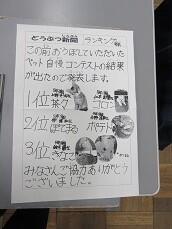 どうぶつ新聞 ランキング
この前おうぼしていただいた
ペット自慢コンテストの結果
が出たのでご発表します。
1位 茶々 コロン
2位 ぽてまる ポテト
3位 きなこ
みなさんご協力ありがとう
ございました。